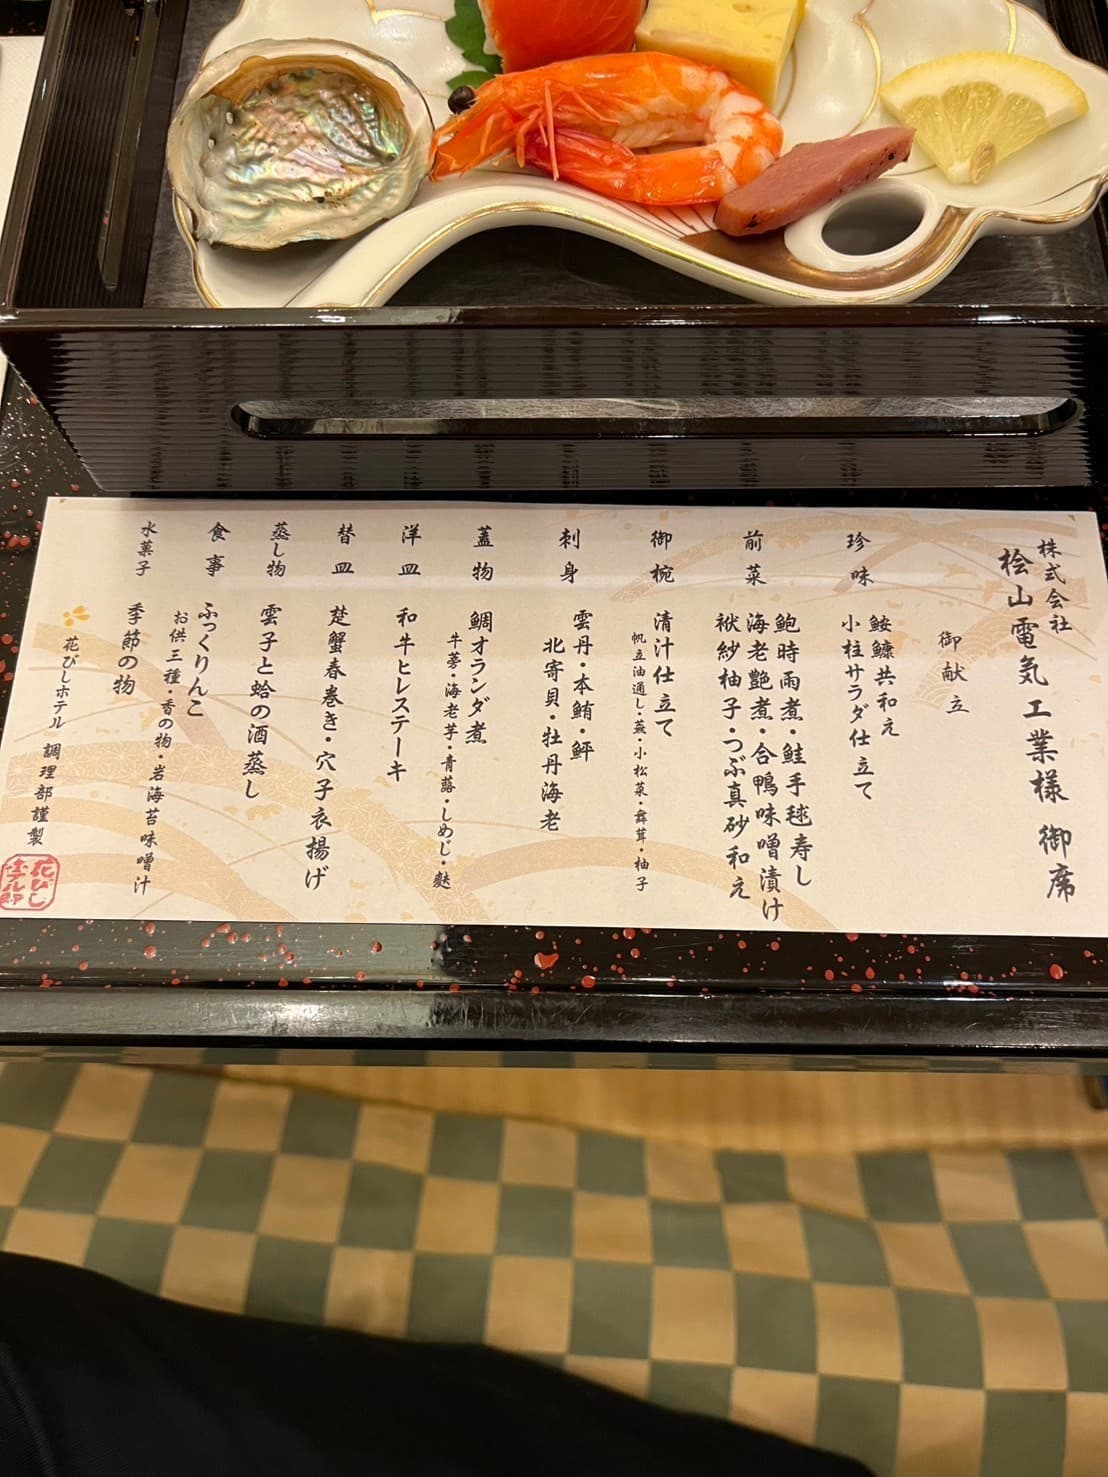 株式会社
桧山電気工業様 御席
御献立
珍味
鮟鱇共和え
小柱サラダ仕立て
前菜
鮑時雨煮・鮭手毬寿し
海老艶煮・合鴨味噌漬け
袱紗柚子・つぶ真砂和え
御椀
清汁仕立て
帆立油通し・蕪・小松菜・舞茸・柚子
刺身
雲丹・本鮪・鮃
北寄貝・牡丹海老
蓋物
鯛オランダ煮
牛蒡・海老芋・青蕗・しめじ・麩
洋皿
和牛ヒレステーキ
替皿
楚蟹春巻き・穴子衣揚げ
蒸し物
雲子と蛤の酒蒸し
食事
ふっくりんこ
お供三種・香の物・岩海苔味噌汁
水菓子
季節の物
花びしホテル 調理部謹製
花びし
ホテル